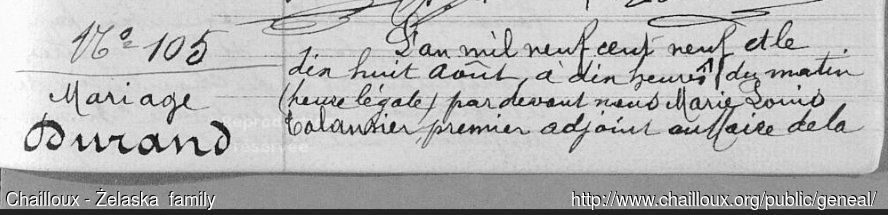 Nº 105
Mariage
Durand
L'an mil neuf cent neuf et le
dix huit Août, à dix heures du matin
(heure légale) par devant nous Marie Louis
premier adjoint au Maire de la
Chailloux - Żelaska family
http://www.chailloux.org/public/geneal/